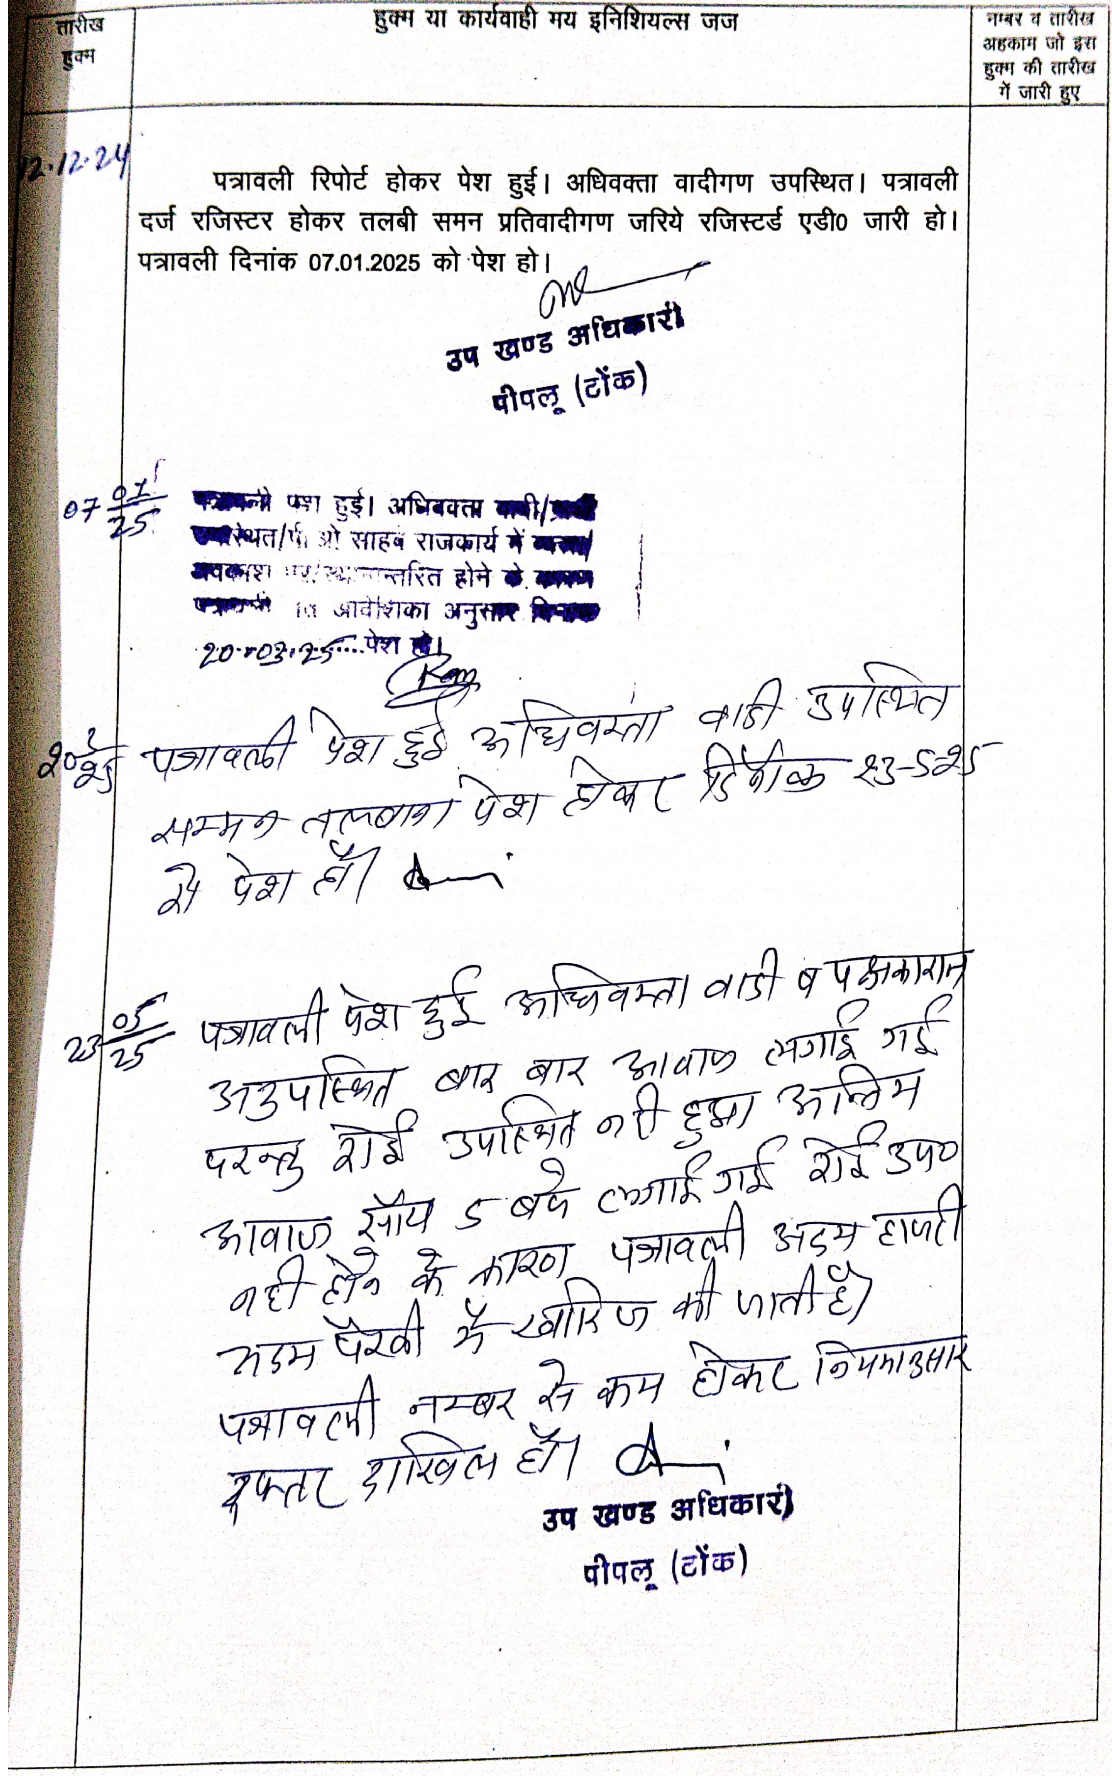 तारीख
हुक्म
हुक्म या कार्यवाही मय इनिशियल्स जज
नम्बर व तारीख
अहकाम जो इस
हुक्म की तारीख
में जारी हुए
12.12.24
पत्रावली रिपोर्ट होकर पेश हुई। अधिवक्ता वादीगण उपस्थित। पत्रावली
दर्ज रजिस्टर होकर तलबी समन प्रतिवादीगण जरिये रजिस्टर्ड एडी0 जारी हो।
पत्रावली दिनांक 07.01.2025 को पेश हो।
उप खण्ड अधिकारी
पीपलू (टोंक)
07 01/25
पेश हुई। अधिवक्ता
साहब राजकार्य में
अवकाश होने के कारण
अनुसार
20.03.25....पेश हो।
20 3/25 पत्रावली पेश हुई अधिवक्ता वादी उपस्थित
सम्मन तलबाना पेश होकर दिनांक 23-5-25
को पेश हो।
23 05/25 पत्रावली पेश हुई अधिवक्ता वादी व पक्षकारान
अनुपस्थित बार बार आवाज लगाई गई
परन्तु कोई उपस्थित नही हुआ अन्तिम
आवाज साँय 5 बजे लगाई गई कोई उप०
नही होने के कारण पत्रावली अदम हाजरी
अदम पैरवी में खारिज की जाती है।
पत्रावली नम्बर से कम होकर नियमानुसार
दफ्तर दाखिल हो।
उप खण्ड अधिकारी
पीपलू (टोंक)